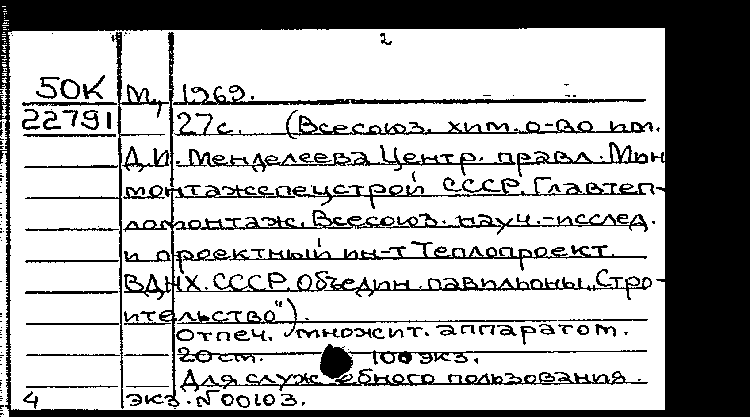 2
50К М., 1969.
22791 27с. (Всесоюз. хим. о-во им.
Д.И. Менделеева Центр. правл. Мин
монтажспецстрой СССР. Главтеп-
ломонтаж. Всесоюз. науч.-исслед.
и проектный ин-т Теплопроект.
ВДНХ. СССР. Объедин. павильоны „Стро-
ительство").
Отпеч. множит. аппаратом.
20см. 100экз.
Для служебного пользования.
4 экз. №00103.